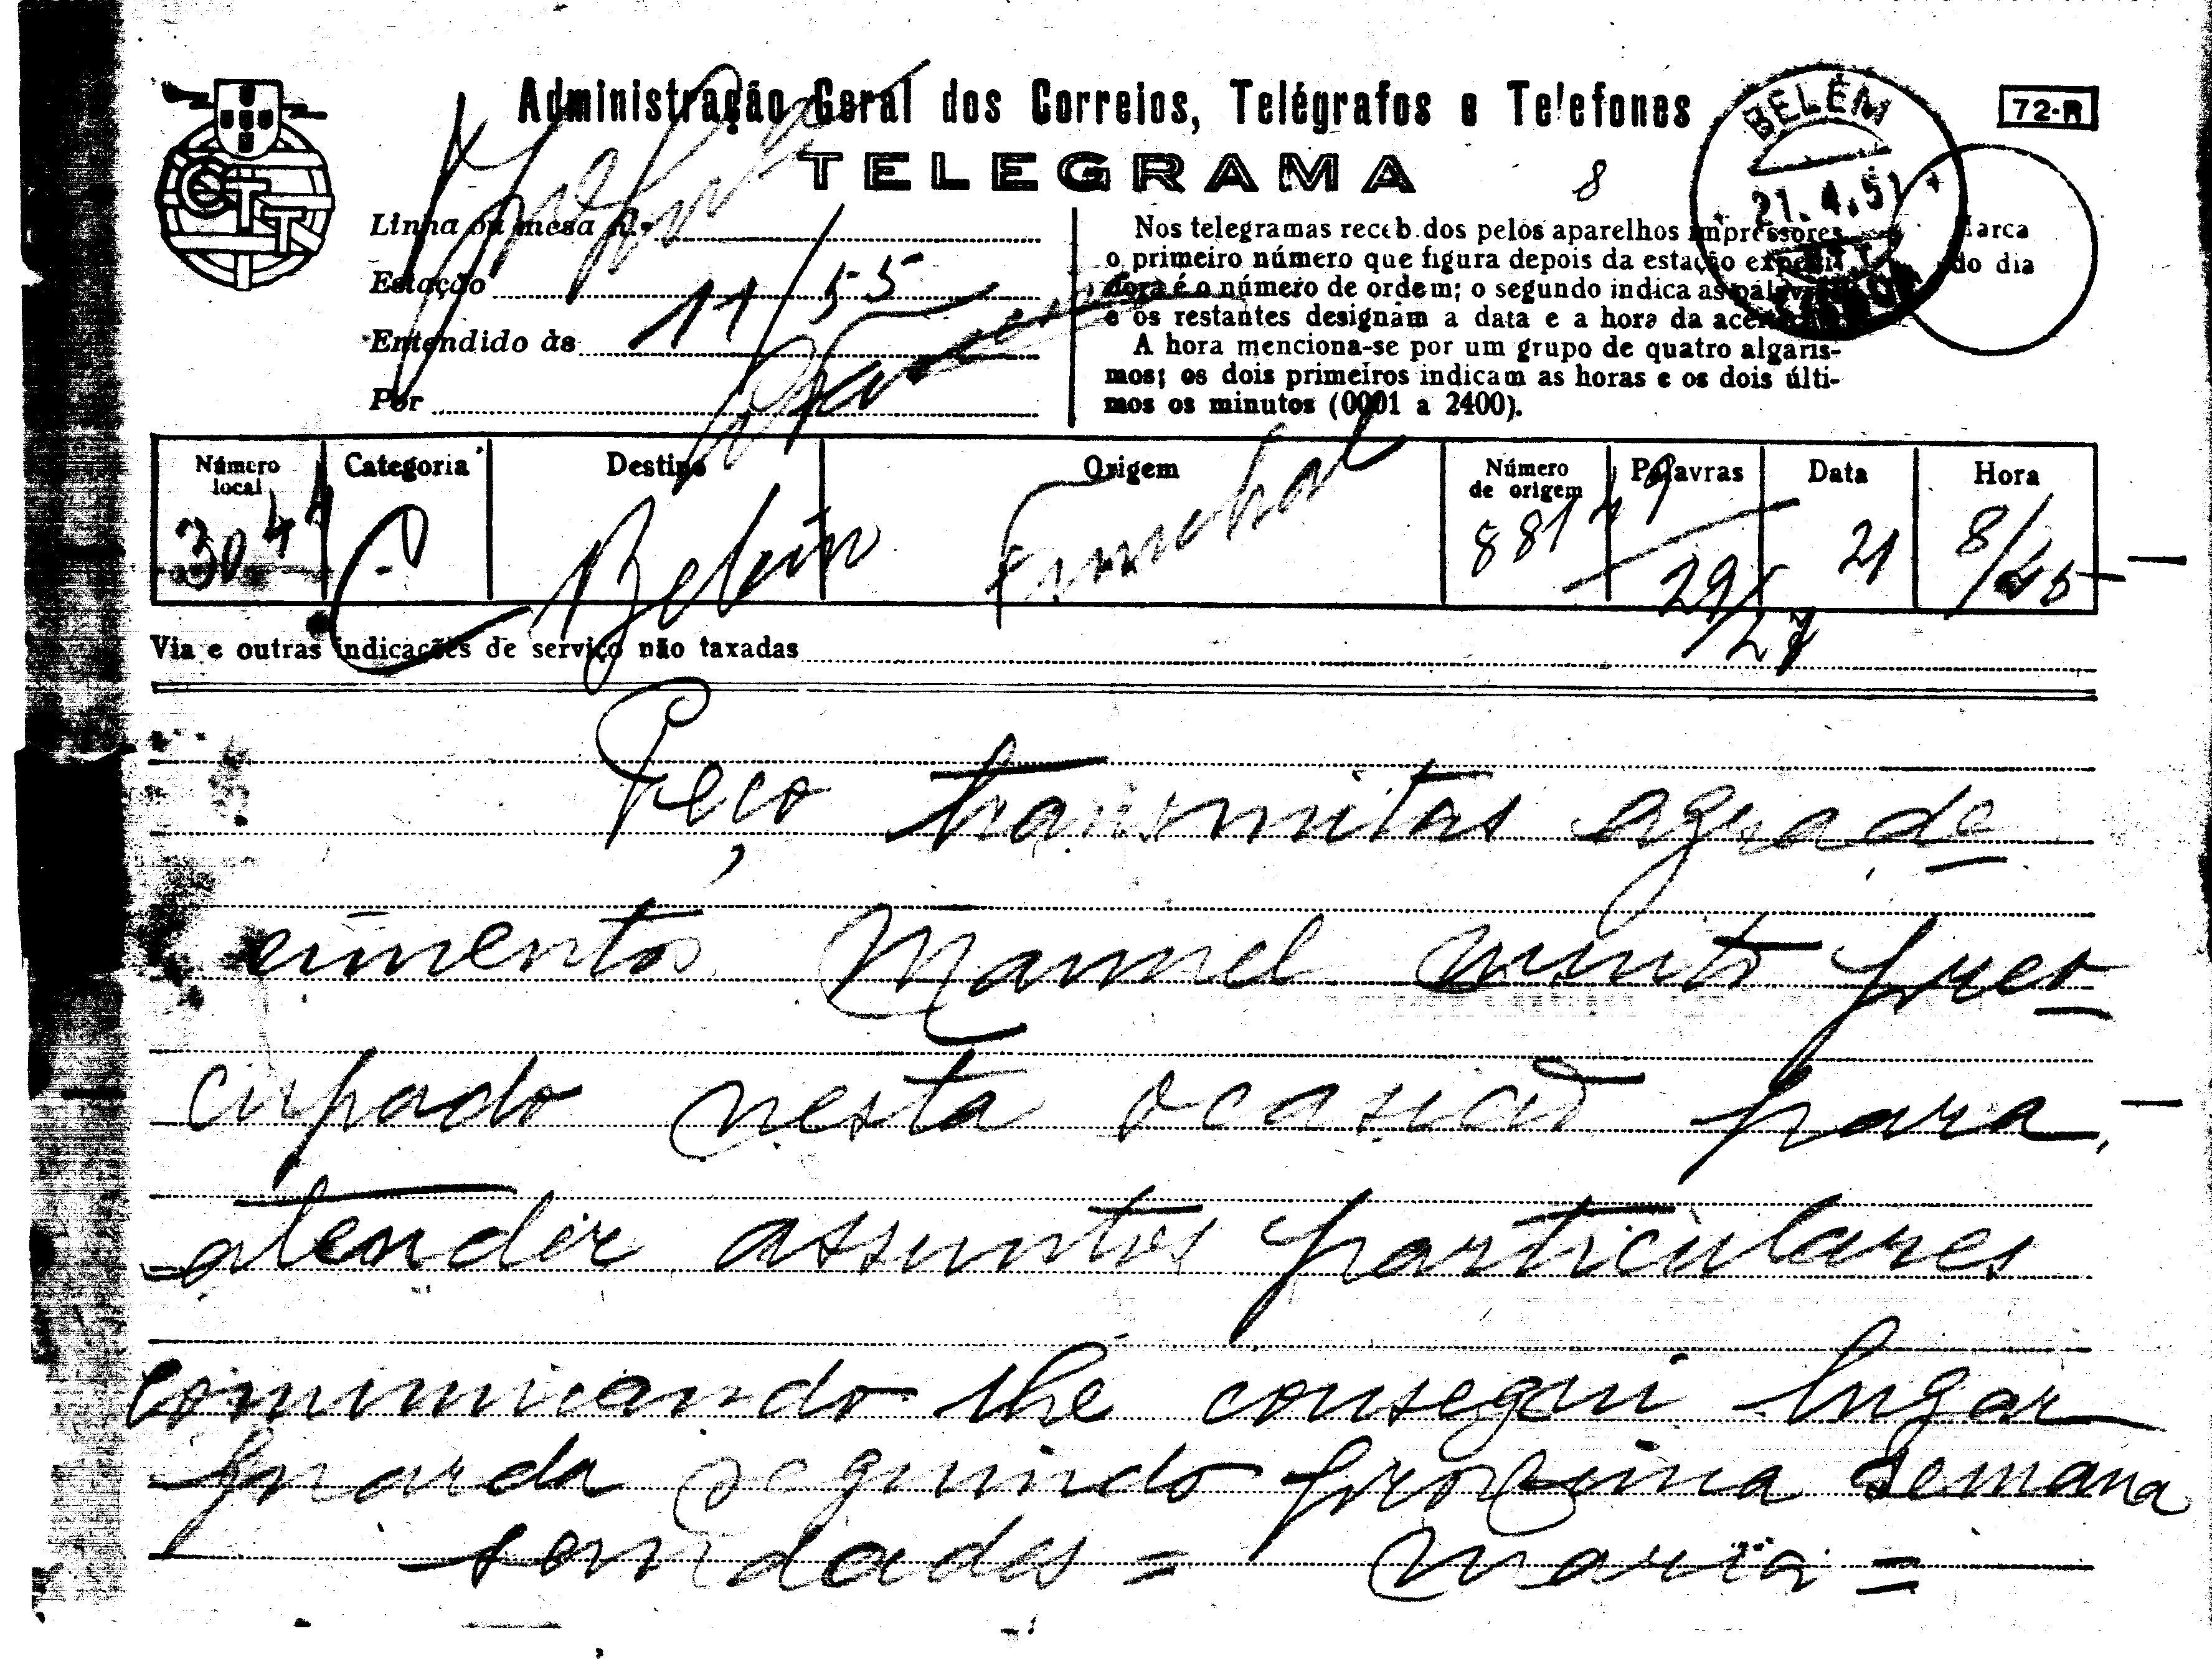 Administração Geral dos Correios, Telégrafos e Telefones
72-R
TELEGRAMA
8
BELÉM
21.4.51
CTT
Linha ou mesa n.º
Estação
Entendido às 11/55
Por
Nos telegramas recebidos pelos aparelhos impressores
o primeiro número que figura depois da estação expedi-
dora é o número de ordem; o segundo indica as palavras
e os restantes designam a data e a hora da aceitação
A hora menciona-se por um grupo de quatro algaris-
mos; os dois primeiros indicam as horas e os dois últi-
mos os minutos (0001 a 2400).
Marca
do dia
Número local Categoria Destino Origem Número de origem Palavras Data Hora
3044 Belém Funchal 881 29/27 21 8/45
Via e outras indicações de serviço não taxadas
Peço transmitas agrade
cimentos Manuel muito preo
cupado nesta ocasião para
atender assuntos particulares
comunicando lhe consegui lugar
guarda seguindo proxima semana
saudades = Maria =